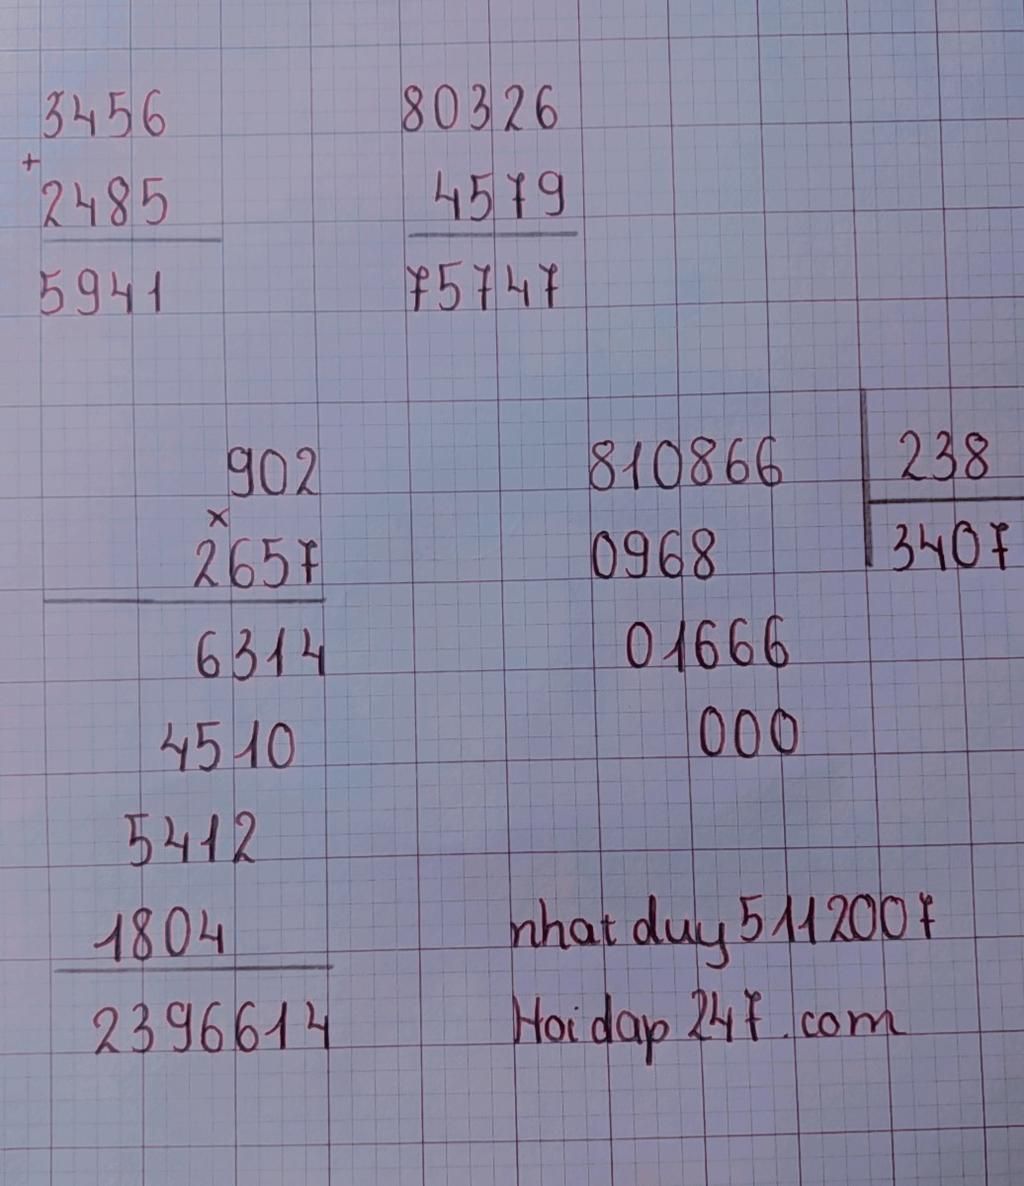 3456
+
2485
5941
80326
4579
75747
902
×
2657
6314
4510
5412
1804
2396614
810866 238
0968 3407
01666
000
nhat duy 5112007
Hoi dap 247.com